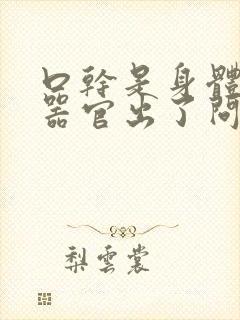 口幹是身體
器官出了問
梨雲裳